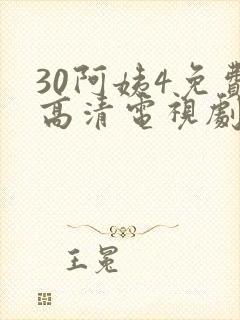 30阿姨4免費
高清電視劇
王冕